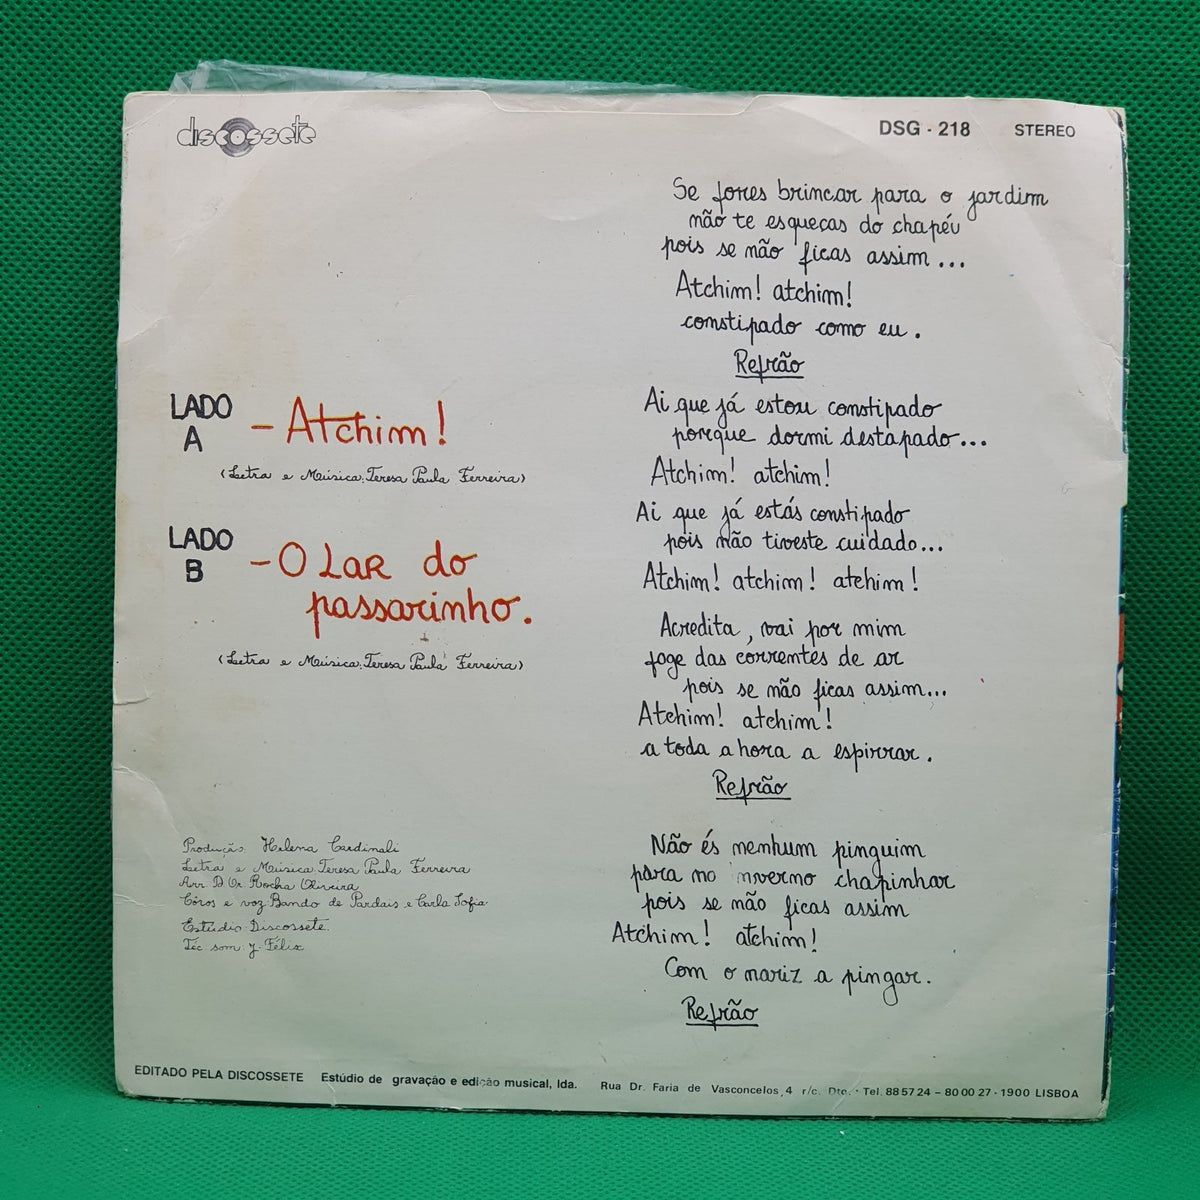 discossete
DSG - 218 STEREO
LADO A - Atchim!
(Letra e Música: Teresa Paula Ferreira)
LADO B - O Lar do
passarinho.
(Letra e Música: Teresa Paula Ferreira)
Produção: Helena Cardinali
Letra e Música: Teresa Paula Ferreira
Arr. D. Or. Rocha Oliveira
Côros e voz: Bando de Pardais e Carla Sofia
Estúdio: Discossete.
Téc. som: J. Félix
Se fores brincar para o jardim
não te esqueças do chapéu
pois se não ficas assim...
Atchim! atchim!
constipado como eu.
Refrão
Ai que já estou constipado
porque dormi destapado...
Atchim! atchim!
Ai que já estás constipado
pois não tiveste cuidado...
Atchim! atchim! atchim!
Acredita, vai por mim
foge das correntes de ar
pois se não ficas assim...
Atchim! atchim!
a toda a hora a espirrar.
Refrão
Não és nenhum pinguim
para no inverno chapinhar
pois se não ficas assim
Atchim! atchim!
Com o nariz a pingar.
Refrão
EDITADO PELA DISCOSSETE Estúdio de gravação e edição musical, lda. Rua Dr. Faria de Vasconcelos, 4 r/c. Dto. - Tel. 88 57 24 - 80 00 27 - 1900 LISBOA